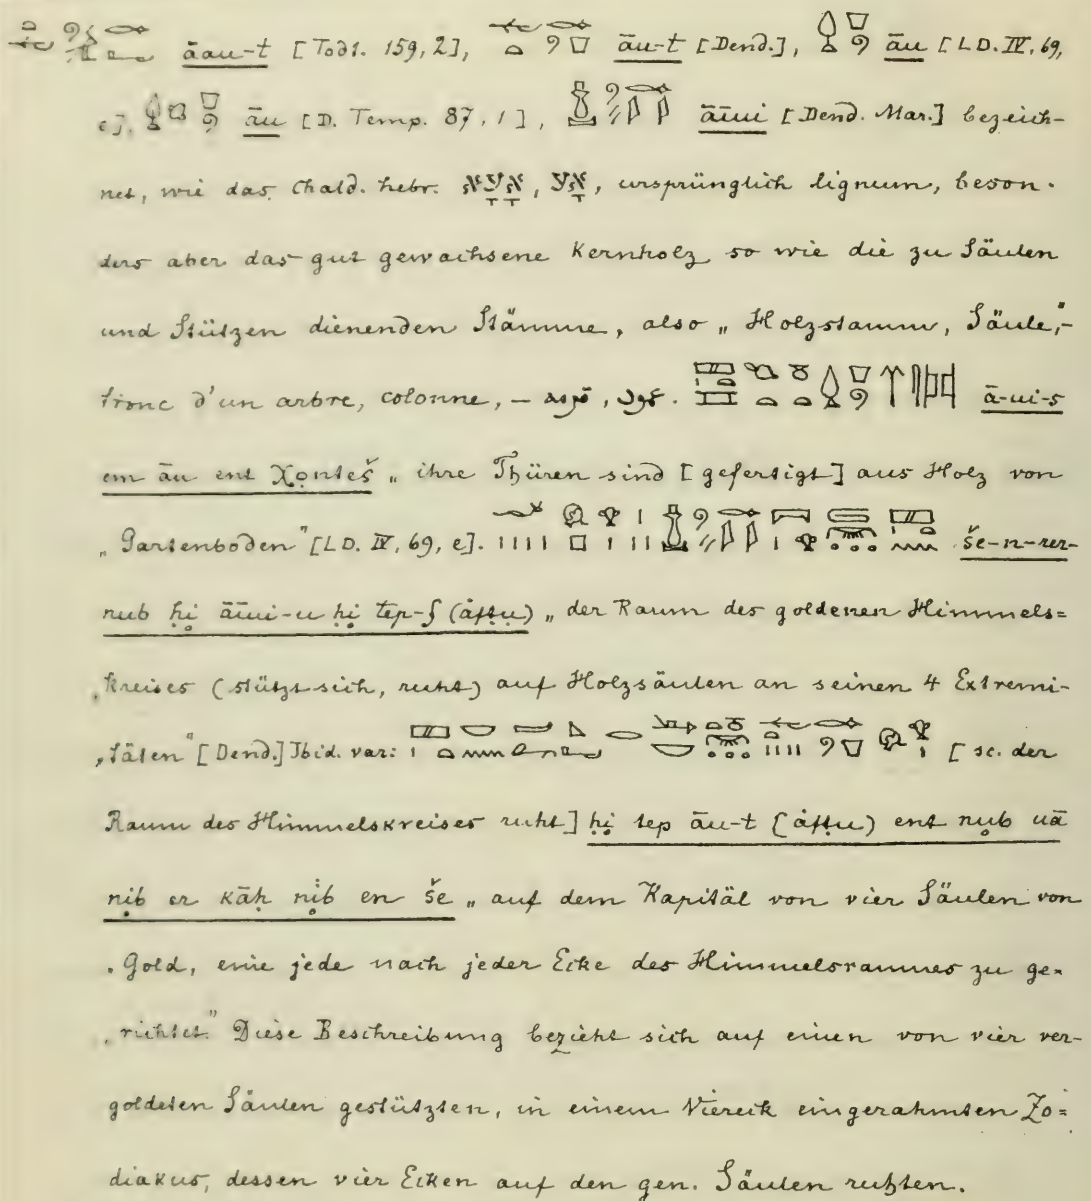 āau-t [Todt. 159, 2], āu-t [Dend.], āu [LD. IV, 69,
c], āu [D. Temp. 87, 1], āīui [Dend. Mar.] bezeich-
net, wie das chald. hebr. אָעָא, אָע, ursprünglich lignum, beson-
ders aber das gut gewachsene Kernholz so wie die zu Säulen
und Stützen dienenden Stämme, also „Holzstamm, Säule",-
tronc d'un arbre, colonne, — ā-ui-s
em āu ent Xonteš „ihre Thüren sind [gefertigt] aus Holz von
„Gartenboden" [LD. IV, 69, e]. še-n-rer-
nub ḥi āīui-u ḥi tep-f (àfṭu) „der Raum des goldenen Himmels=
„kreises (stützt sich, ruht) auf Holzsäulen an seinen 4 Extremi-
„täten" [Dend.] Ibid. var: [sc. der
Raum des Himmelskreises ruht] ḥi tep āu-t [àfṭu) ent nub uā
nib er kāḥ nib en še „auf dem Kapitäl von vier Säulen von
„Gold, eine jede nach jeder Ecke des Himmelsraumes zu ge-
„richtet." Diese Beschreibung bezieht sich auf einen von vier ver-
goldeten Säulen gestützten, in einem Viereck eingerahmten Zo=
diakus, dessen vier Ecken auf den gen. Säulen ruhten.